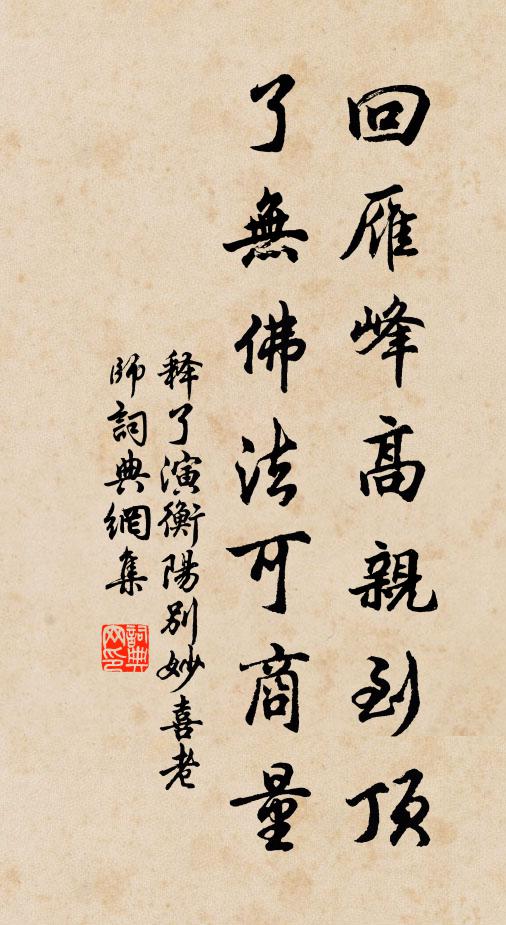 回雁峰高親到頂
了無佛法可商量
释了演衡陽別妙喜老
師詞典網集
詞典
网印